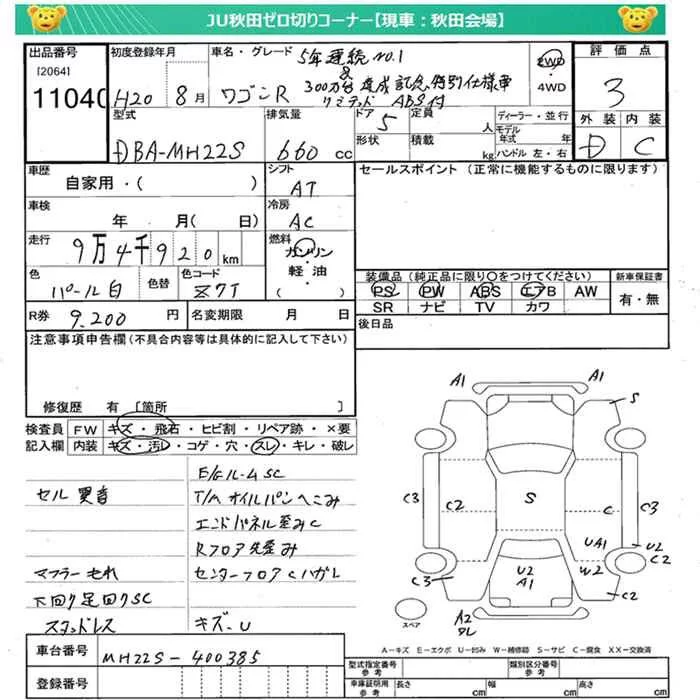 JU秋田ゼロ切りコーナー【現車：秋田会場】
出品番号
[2064]
11040
初度登録年月
H20 8月
車名・グレード
ワゴンR
5年連続NO.1
&
300万台達成記念特別仕様車
リミテッド ABS付
2WD
・
4WD
評価点
3
外装 内装
D C
型式
DBA-MH22S
排気量
660 cc
ドア
5
形状
定員
人
積載
kg
ディーラー・並行
モデル年式 年
ハンドル 左・右
車歴
自家用・( )
シフト
AT
車検
年 月( 日)
冷房
AC
走行
9万4千920km
燃料
ガソリン
軽・油
( )
色
パール白
色替
色コード
Z7T
R券
9.200 円
名変期限 月 日
セールスポイント (正常に機能するものに限ります)
装備品 (純正品に限り○をつけてください)
PS PW ABS エアB AW
SR ナビ TV カワ
新車保証書
有・無
後日品
注意事項申告欄(不具合内容等は具体的に記入して下さい)
修復歴 有 [箇所 ]
検査員 FW キズ・飛石・ヒビ割・リペア跡・×要
記入欄 内装 キズ・汚レ・コゲ・穴・スレ・キレ・破レ
E/Gルーム SC
セル 異音
T/M オイルパン ヘこみ
エンドパネル歪みC
Rフロア先歪み
マフラーもれ
センターフロアC ハガレ
下回り足回りSC
スタッドレス
キズ・U
A1 A1
S
C3 C2 S C C3
UA1 U2
C2
C3 U2 A1 W2
C2
スペア
A2
ワレ
A－キズ E－エクボ U－凹み W－補修跡 S－サビ C－腐食 XX－交換済
車台番号
MH22S-400385
登録番号
型式指定番号
参考
類別区分番号
参考
車庫証明用
参考
長さ cm 幅 cm 高さ cm